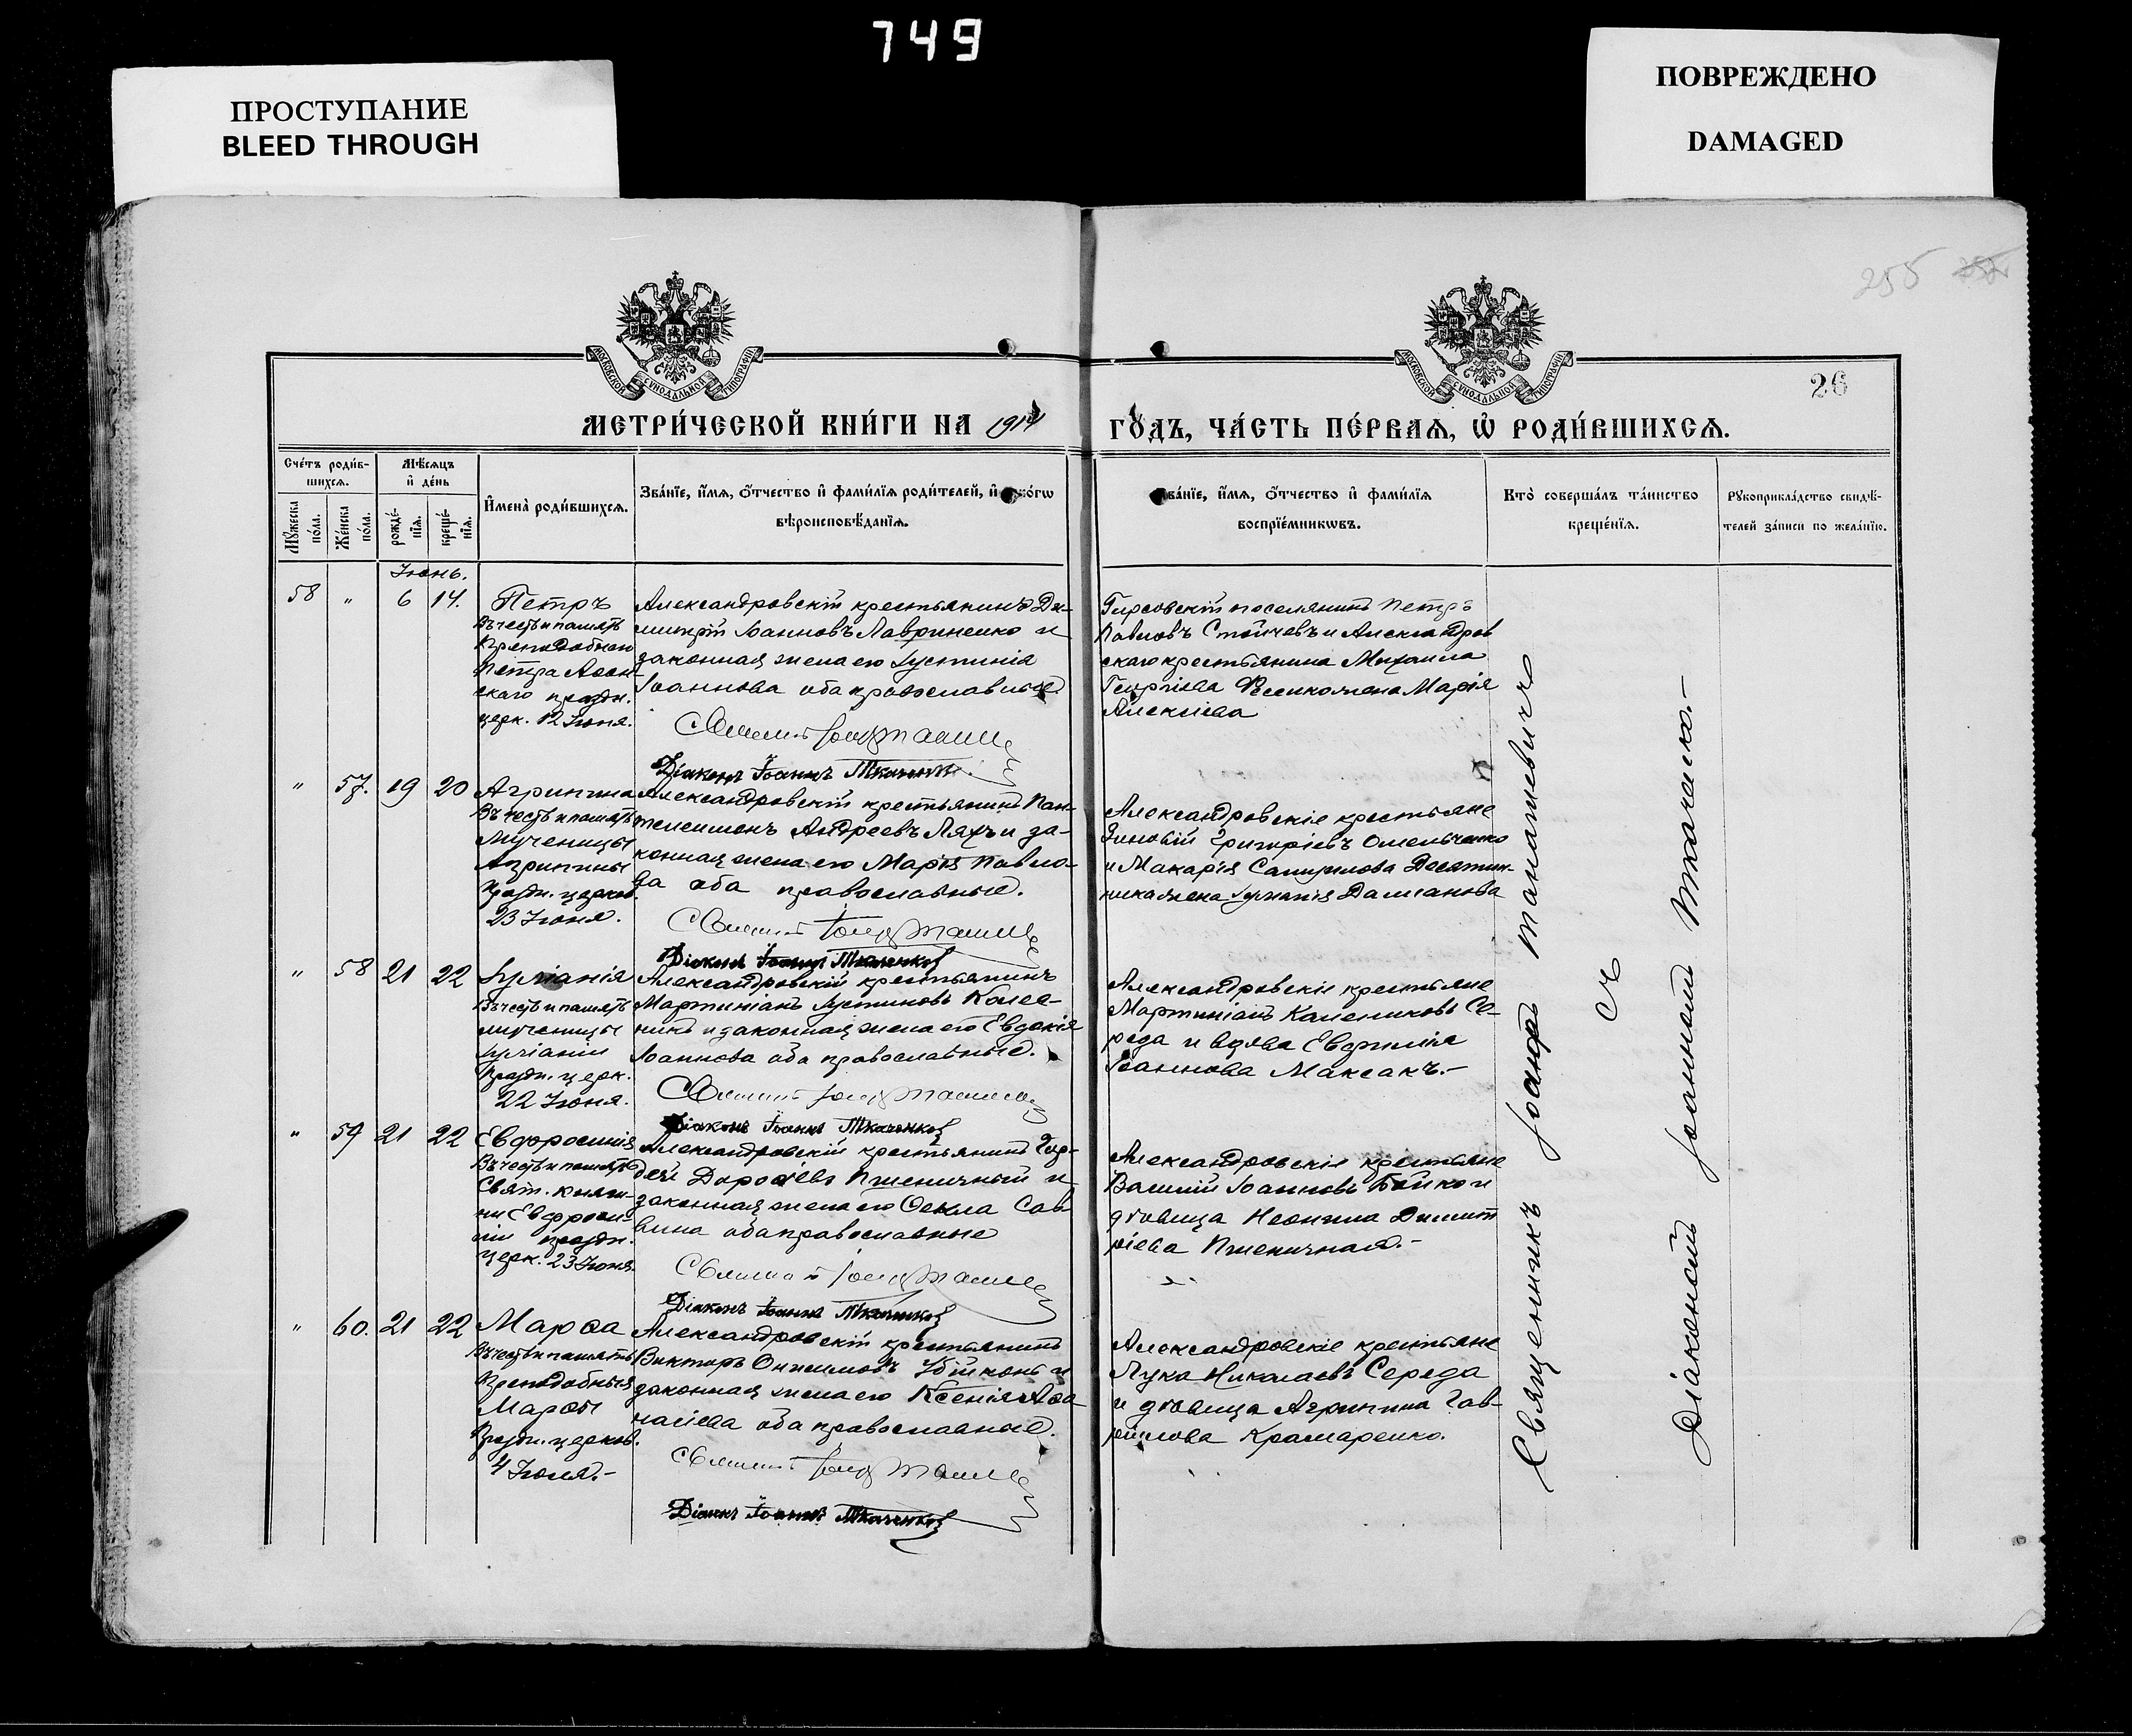 749
ПРОСТУПАНИЕ
BLEED THROUGH
ПОВРЕЖДЕНО
DAMAGED
255
26
МОСКОВСКОЙ СѴНОДАЛЬНОЙ ТИПОГРАФІИ
МОСКОВСКОЙ СѴНОДАЛЬНОЙ ТИПОГРАФІИ
МЕТРИ́ЧЕСКОЙ КНИ́ГИ НА 1914 ГО́ДЪ, ЧА́СТЬ ПЕ́РВАѦ, Ѡ҆ РОДИ́ВШИХСѦ.
Сче́тъ роди́в-
шихсѧ.
Мꙋжеска по́ла.
Же́нска по́ла.
Мѣ́сѧцъ
и҆ де́нь
рожде́-
нїѧ.
креще́-
нїѧ.
И҆мена̀ роди́вшихсѧ.
Зва́нїе, и҆́мѧ, ѻ҆́тчество и҆ фами́лїѧ роди́телей, и҆ како́гѡ
вѣроисповѣ́данїѧ.
Зва́нїе, и҆́мѧ, ѻ҆́тчество и҆ фами́лїѧ
воспрїе́мникѡвъ.
Кто̀ соверша́лъ та́инство
креще́нїѧ.
Рꙋкоприкла́дство свидѣ́-
телей за́писи по жела́нїю.
Іюнь.
58 " 6 14.
Петръ
Въ честь и память
Преподобнаго
Петра Аѳон-
скаго праздн.
церк. 12 Іюня.
Александровскій крестьянинъ Ди-
митрій Іоанновъ Лавриненко и
законная жена его Іустинія
Іоаннова оба православные
Діаконъ Іоаннъ Ткаченко
Гирсовскій поселянинъ Петръ
Павловъ Стойчевъ и Александров
скаго крестьянина Михаила
Георгіева жена Марія
Алексіева
" 57. 19 20
Агрипина
Въ честь и память
Мученицы
Агрипины
Праздн. церков.
23 Іюня.
Александровскій крестьянинъ Пан-
телеимонъ Андреевъ Ляхъ и за-
конная жена его Марія Павло-
ва оба православные.
Діаконъ Іоаннъ Ткаченко
Александровскіе крестьяне
Зиновій Григоріевъ Омельченко
и Макарія Самуилова Десятни-
ка жена Іуліанія Даміанова
" 58 21 22
Іуліанія
Въ честь и память
мученицы
Іуліаніи
Праздн. церк.
22 Іюня.
Александровскій крестьянинъ
Мартиніанъ Іустиновъ Колес-
никъ и законная жена его Евдокія
Іоаннова оба православные.
Діаконъ Іоаннъ Ткаченко
Александровскіе крестьяне
Мартиніанъ Калениковъ Се-
реда и вдова Евфимія
Іоаннова Максакъ.-
" 59 21 22
Евфросинія
Въ честь и память
Свят. княги-
ни Евфроси-
ніи праздн.
церк. 23 Іюня.
Александровскій крестьянинъ Гор-
дей Дороѳеевъ Пшеничный и
законная жена его Ѳекла Сав-
вина оба православные
Діаконъ Іоаннъ Ткаченко
Александровскіе крестьяне
Василій Іоанновъ Бойко и
дѣвица Неонила Димит
ріева Пшеничная.-
" 60. 21 22
Марѳа
Въ честь и память
Преподобныя
Марѳы
Праздн. церков.
4 Іюля.-
Александровскій крестьянинъ
Викторъ Онисимовъ и
законная жена его Ксенія Аѳа-
насіева оба православные.
Діаконъ Іоаннъ Ткаченко
Александровскіе крестьяне
Лука Николаевъ Середа
и дѣвица Агрипина Гав-
ріилова Крамаренко.
Священникъ Іоаннъ Танашевичъ
съ
Діакономъ Іоанномъ Ткаченко.-